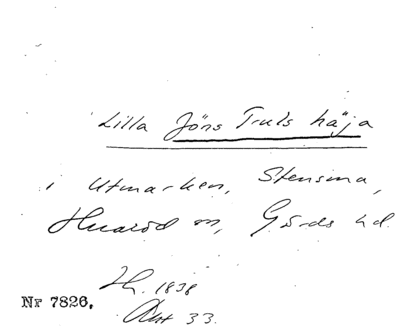 Lilla Jöns Truls häja
i Utmarken, Stensma,
Huaröd sn, Gärds hd.
H. 1838
Nr 7826,
Akt 33.